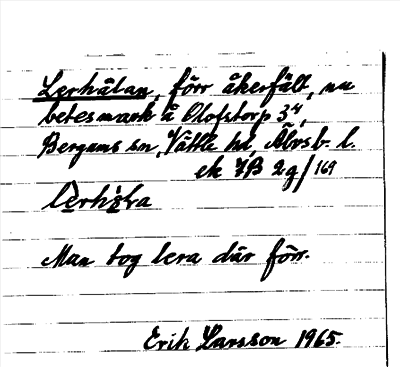 Lerhålan, förr åkerfält, nu
betesmark å Olofstorp 3⁴,
Bergums sn, Vättle hd, Älvsb. l.
ek 7B 2g/169
Man tog lera där förr.
Erik Larsson 1965.